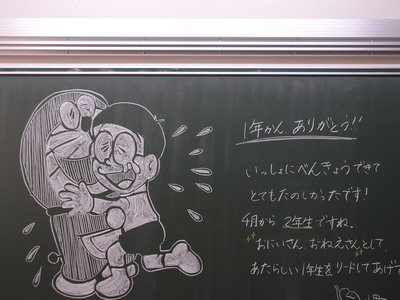 1年かん、ありがとう!!
いっしょにべんきょうできて
とてもたのしかったです!
4月から 2年生ですね。
おにいさん、おねえさんとして
あたらしい1年生をリードしてあげて